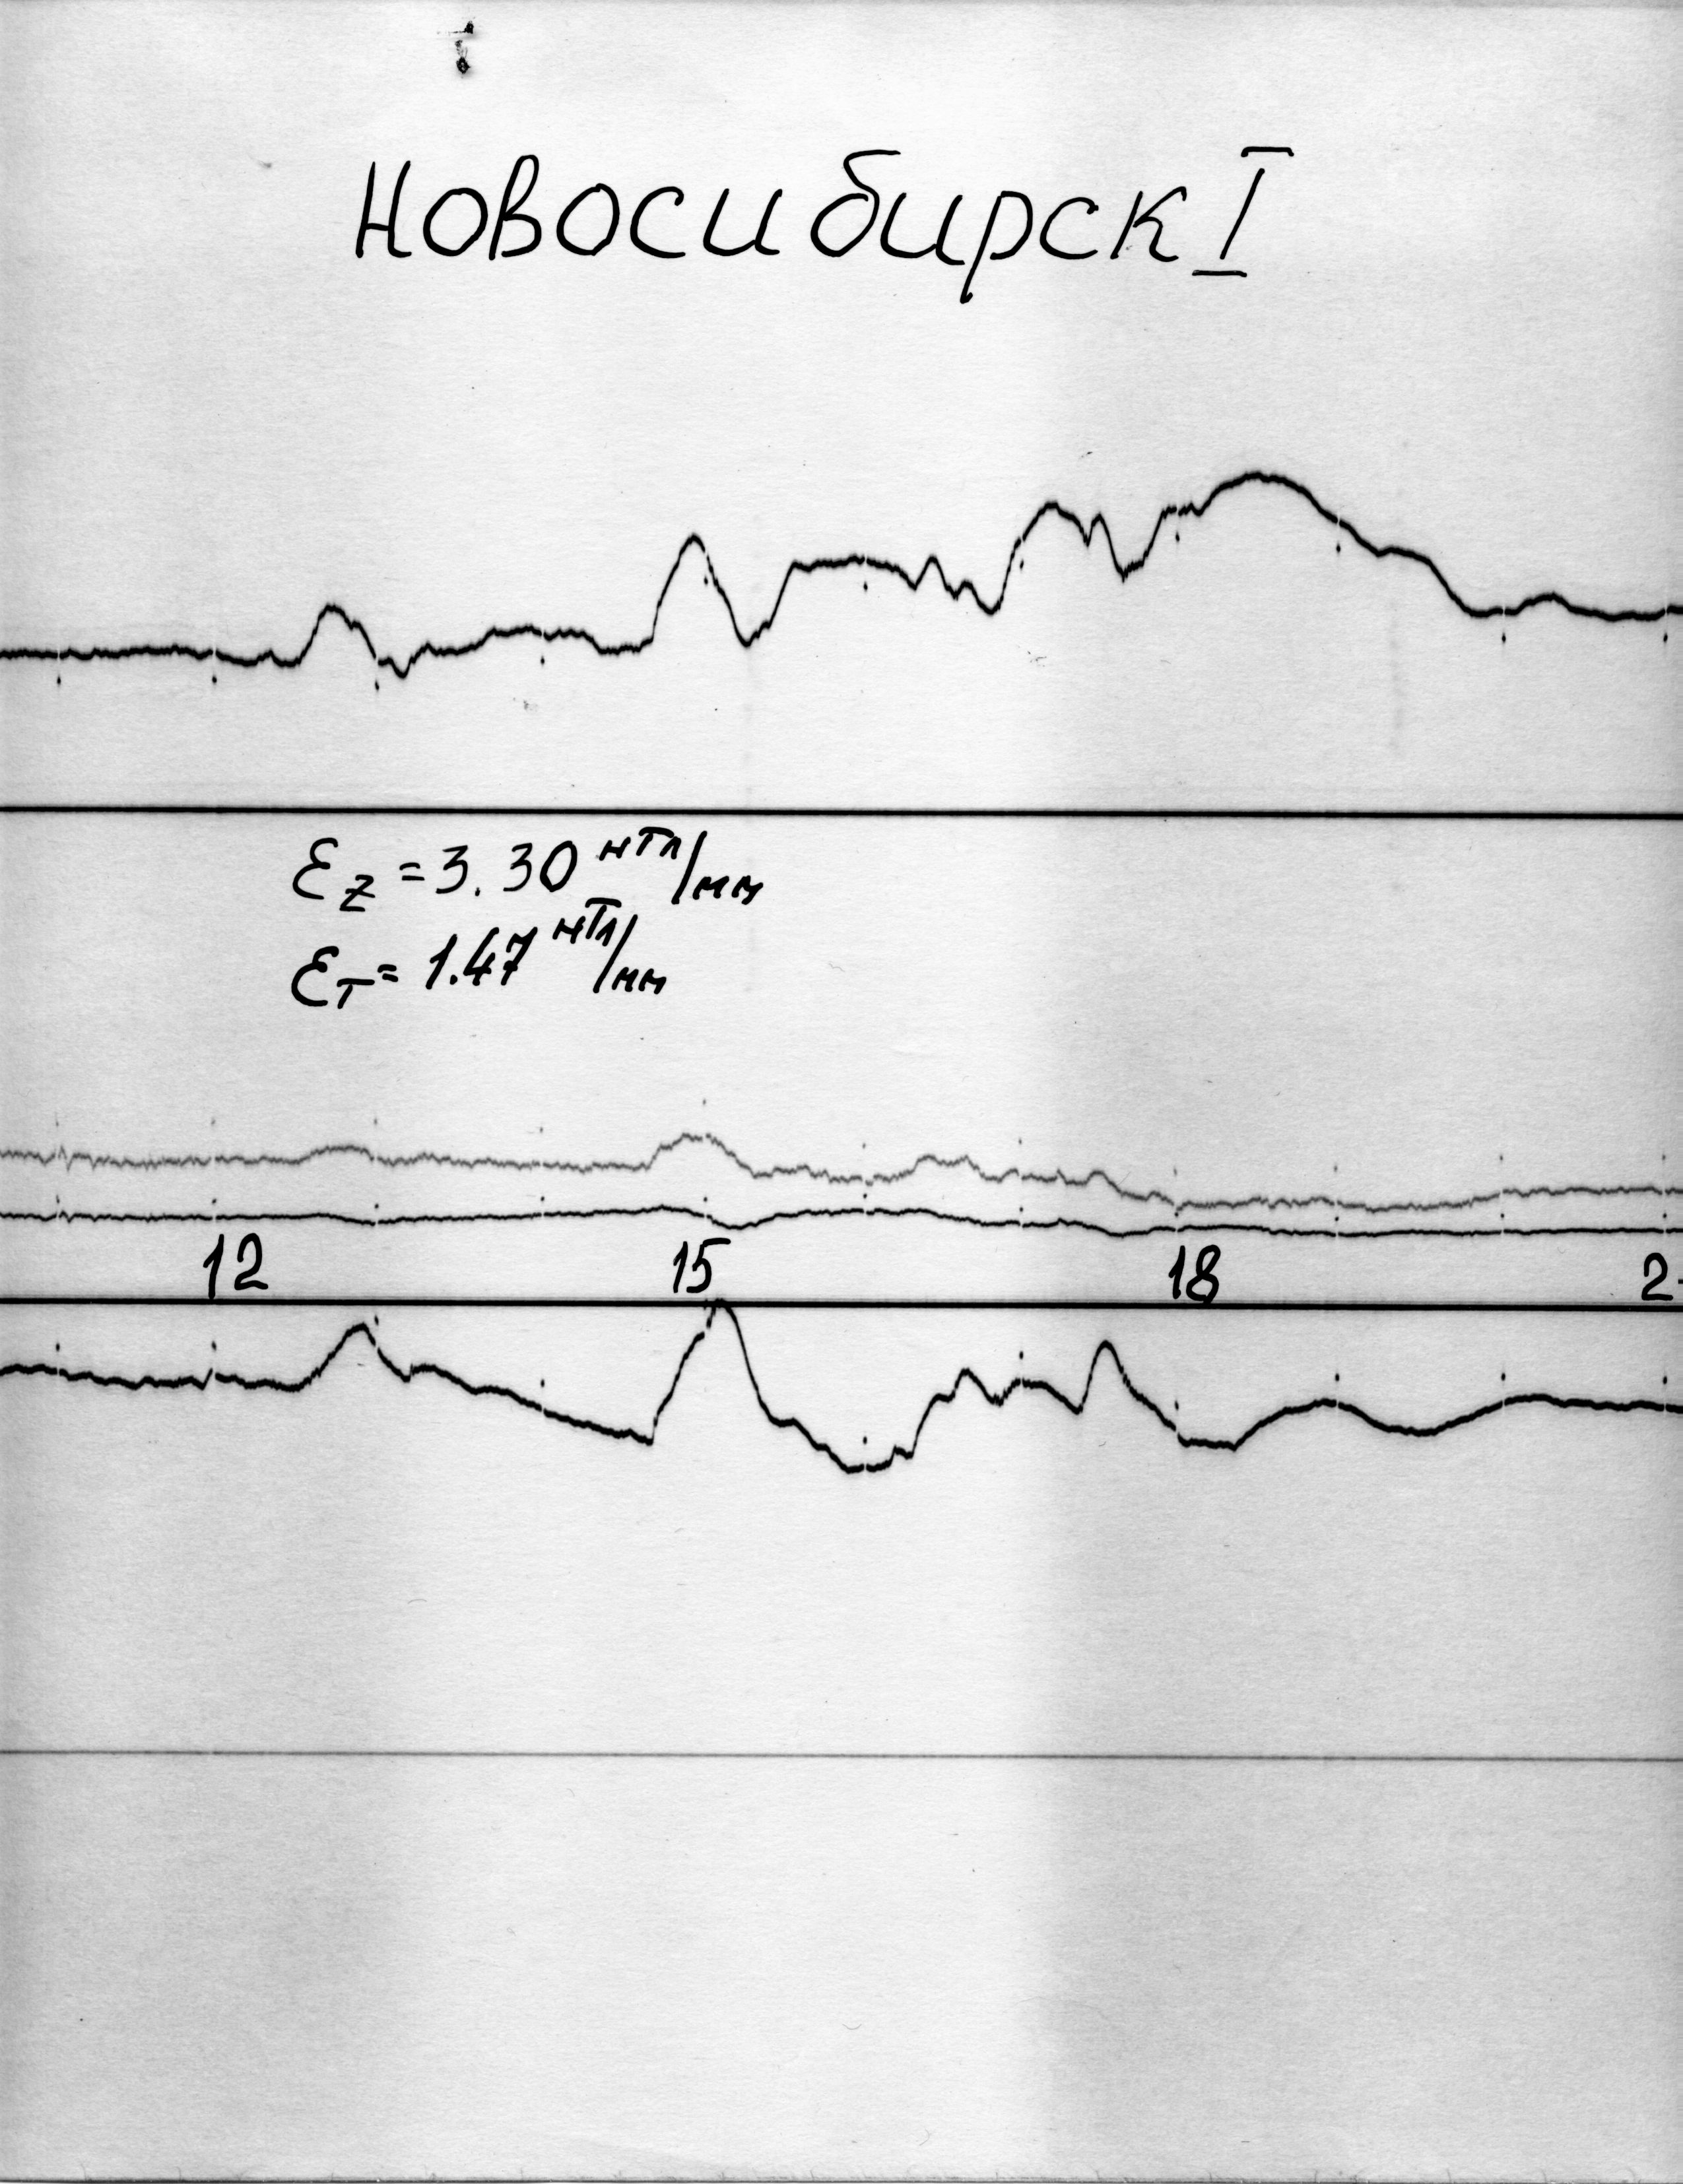 Новосибирск I
Ɛz = 3.30 нТл/мм
Ɛт = 1.47 нТл/мм
12 15 18 2